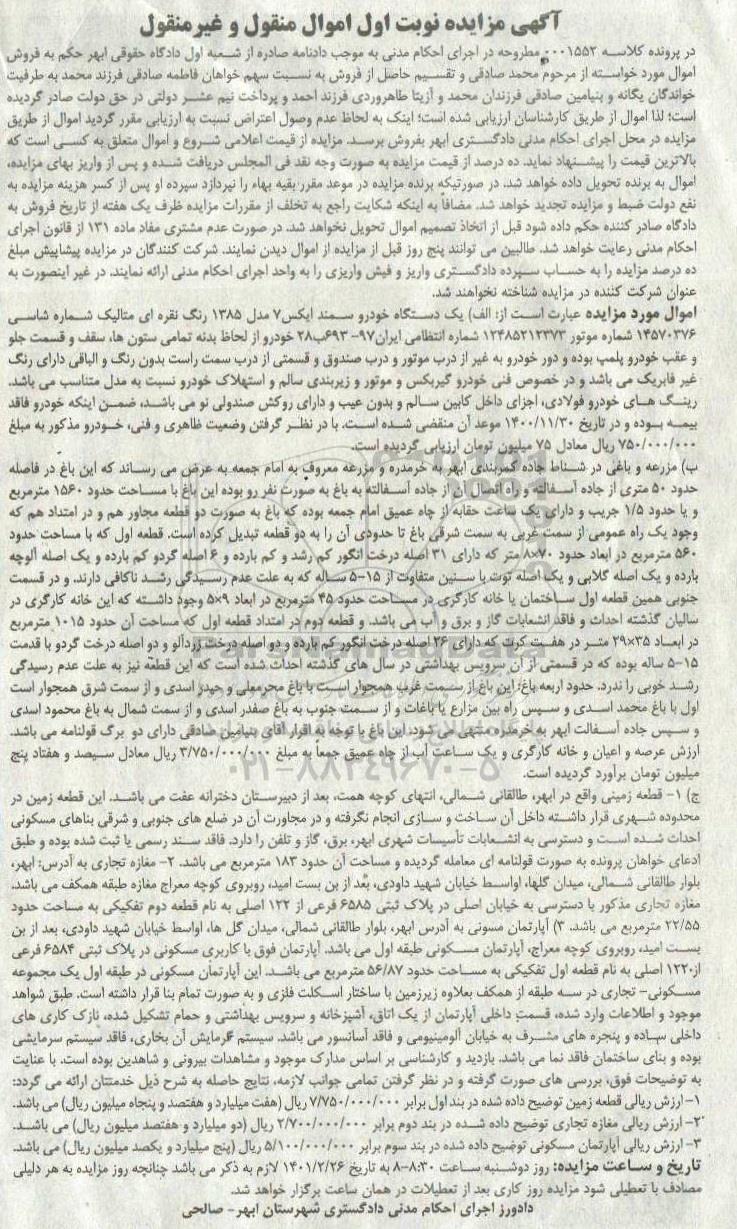 آگهی مزایده نوبت اول اموال منقول و غیرمنقول
در پرونده کلاسه ۰۰۰۱۵۵۲ مطروحه در اجرای احکام مدنی به موجب دادنامه صادره از شعبه اول دادگاه حقوقی ابهر حکم به فروش
اموال مورد خواسته از مرحوم محمد صادقی و تقسیم حاصل از فروش به نسبت سهم خواهان فاطمه صادقی فرزند محمد به طرفیت
خواندگان یگانه و بنیامین صادقی فرزندان محمد و آزیتا طاهروردی فرزند احمد و پرداخت نیم عشر دولتی در حق دولت صادر گردیده
است؛ لذا اموال از طریق کارشناسان ارزیابی شده است؛ اینک به لحاظ عدم وصول اعتراض نسبت به ارزیابی مقرر گردید اموال از طریق
مزایده در محل اجرای احکام مدنی دادگستری ابهر بفروش برسد. مزایده از قیمت اعلامی شروع و اموال متعلق به کسی است که
بالاترین قیمت را پیشنهاد نماید. ده درصد از قیمت مزایده به صورت وجه نقد فی المجلس دریافت شده و پس از واریز بهای مزایده،
اموال به برنده تحویل داده خواهد شد. در صورتیکه برنده مزایده در موعد مقرر بقیه بهاء را نپردازد سپرده او پس از کسر هزینه مزایده به
نفع دولت ضبط و مزایده تجدید خواهد شد. مضافاً به اینکه شکایت راجع به تخلف از مقررات مزایده ظرف یک هفته از تاریخ فروش به
دادگاه صادر کننده حکم داده شود قبل از اتخاذ تصمیم اموال تحویل نخواهد شد. در صورت عدم مشتری مفاد ماده ۱۳۱ از قانون اجرای
احکام مدنی رعایت خواهد شد. طالبین می توانند پنج روز قبل از مزایده از اموال دیدن نمایند. شرکت کنندگان در مزایده پیشاپیش مبلغ
ده درصد مزایده را به حساب سپرده دادگستری واریز و فیش واریزی را به واحد اجرای احکام مدنی ارائه نمایند. در غیر اینصورت به
عنوان شرکت کننده در مزایده شناخته نخواهند شد.
اموال مورد مزایده عبارت است از: الف) یک دستگاه خودرو سمند ایکس۷ مدل ۱۳۸۵ رنگ نقره ای متالیک شماره شاسی
۱۴۵۷۰۳۷۶ شماره موتور ۱۲۴۸۵۲۱۲۳۷۳ شماره انتظامی ایران۹۷- ۶۹۳ب۲۸ خودرو از لحاظ بدنه تمامی ستون ها، سقف و قسمت جلو
و عقب خودرو پلمپ بوده و دور خودرو به غیر از درب موتور و درب صندوق و قسمتی از درب سمت راست بدون رنگ و الباقی دارای رنگ
غیر فابریک می باشد و در خصوص فنی خودرو گیربکس و موتور و زیربندی سالم و استهلاک خودرو نسبت به مدل متناسب می باشد.
رینگ های خودرو فولادی، اجزای داخل کابین سالم و بدون عیب و دارای روکش صندولی نو می باشد، ضمن اینکه خودرو فاقد
بیمه بوده و در تاریخ ۱۴۰۰/۱۱/۳۰ موعد آن منقضی شده است. با در نظر گرفتن وضعیت ظاهری و فنی، خودرو مذکور به مبلغ
۷۵۰/۰۰۰/۰۰۰ ریال معادل ۷۵ میلیون تومان ارزیابی گردیده است.
ب) مزرعه و باغی در شناط جاده کمربندی ابهر به خرمدره و مزرعه معروف به امام جمعه به عرض می رساند که این باغ در فاصله
حدود ۵۰ متری از جاده آسفالته و راه اتصال آن از جاده آسفالته به باغ به صورت نفر رو بوده این باغ با مساحت حدود ۱۵۶۰ مترمربع
و یا حدود ۱/۵ جریب و دارای یک ساعت حقابه از چاه عمیق امام جمعه بوده که باغ به صورت دو قطعه مجاور هم و در امتداد هم که
وجود یک راه عمومی از سمت غربی به سمت شرقی باغ تا حدودی آن را به دو قطعه تبدیل کرده است. قطعه اول که با مساحت حدود
۵۶۰ مترمربع در ابعاد حدود ۷۰×۸ متر که دارای ۳۱ اصله درخت انگور کم رشد و کم بارده و ۶ اصله گردو کم بارده و یک اصله آلوچه
بارده و یک اصله گلابی و یک اصله توت با سنین متفاوت از ۱۵-۵ ساله که به علت عدم رسیدگی رشد ناکافی دارند. و در قسمت
جنوبی همین قطعه اول ساختمان یا خانه کارگری در مساحت حدود ۴۵ مترمربع در ابعاد ۹×۵ وجود داشته که این خانه کارگری در
سالیان گذشته احداث و فاقد انشعابات گاز و برق و آب می باشد. و قطعه دوم در امتداد قطعه اول که مساحت آن حدود ۱۰۱۵ مترمربع
در ابعاد ۳۵×۲۹ متر در هفت کرت که دارای ۲۶ اصله درخت انگور کم بارده و دو اصله درخت زردآلو و دو اصله درخت گردو با قدمت
۱۵-۵ ساله بوده که در قسمتی از آن سرویس بهداشتی در سال های گذشته احداث شده است که این قطعه نیز به علت عدم رسیدگی
رشد خوبی را ندرد. حدود اربعه باغ: این باغ از سمت غرب همجوار است با باغ محرمعلی و حیدر اسدی و از سمت شرق همجوار است
اول با باغ محمد اسدی و سپس راه بین مزارع یا باغات و از سمت جنوب به باغ صفدر اسدی و از سمت شمال به باغ محمود اسدی
و سپس جاده آسفالت ابهر به خرمدره منتهی می شود. این باغ با توجه به اقرار آقای بنیامین صادقی دارای دو برگ قولنامه می باشد.
ارزش عرصه و اعیان و خانه کارگری و یک ساعت آب از چاه عمیق جمعاً به مبلغ ۳/۷۵۰/۰۰۰/۰۰۰ ریال معادل سیصد و هفتاد پنج
میلیون تومان برآورد گردیده است.
ج) ۱- قطعه زمینی واقع در ابهر، طالقانی شمالی، انتهای کوچه همت، بعد از دبیرستان دخترانه عفت می باشد. این قطعه زمین در
محدوده شهری قرار داشته داخل آن ساخت و سازی انجام نگرفته و در مجاورت آن در ضلع های جنوبی و شرقی بناهای مسکونی
احداث شده است و دسترسی به انشعابات تأسیسات شهری ابهر، برق، گاز و تلفن را دارد. فاقد سند رسمی یا ثبت شده بوده و طبق
ادعای خواهان پرونده به صورت قولنامه ای معامله گردیده و مساحت آن حدود ۱۸۳ مترمربع می باشد. ۲- مغازه تجاری به آدرس: ابهر،
بلوار طالقانی شمالی، میدان گلها، اواسط خیابان شهید داودی، بعد از بن بست امید، روبروی کوچه معراج مغازه طبقه همکف می باشد.
مغازه تجاری مذکور با دسترسی به خیابان اصلی در پلاک ثبتی ۶۵۸۵ فرعی از ۱۲۲ اصلی به نام قطعه دوم تفکیکی به مساحت حدود
۲۲/۵۵ مترمربع می باشد. ۳) آپارتمان مسونی به آدرس ابهر، بلوار طالقانی شمالی، میدان گل ها، اواسط خیابان شهید داودی، بعد از بن
بست امید، روبروی کوچه معراج، آپارتمان مسکونی طبقه اول می باشد. آپارتمان فوق با کاربری مسکونی در پلاک ثبتی ۶۵۸۴ فرعی
از۱۲۲۰ اصلی به نام قطعه اول تفکیکی به مساحت حدود ۵۶/۸۷ مترمربع می باشد. این آپارتمان مسکونی در طبقه اول یک مجموعه
مسکونی- تجاری در سه طبقه از همکف بعلاوه زیرزمین با ساختار اسکلت فلزی و به صورت تمام بنا قرار داشته است. طبق شواهد
موجود و اطلاعات وارد شده، قسمت داخلی آپارتمان از یک اتاق، آشپزخانه و سرویس بهداشتی و حمام تشکیل شده، نازک کاری های
داخلی ساده و پنجره های مشرف به خیابان آلومینیومی و فاقد آسانسور می باشد. سیستم گرمایش آن بخاری، فاقد سیستم سرمایشی
بوده و بنای ساختمان فاقد نما می باشد. بازدید و کارشناسی بر اساس مدارک موجود و مشاهدات بیرونی و شاهدین بوده است. با عنایت
به توضیحات فوق، بررسی های صورت گرفته و در نظر گرفتن تمامی جوانب لازمه، نتایج حاصله به شرح ذیل خدمتتان ارائه می گردد:
۱- ارزش ریالی قطعه زمین توضیح داده شده در بند اول برابر ۷/۷۵۰/۰۰۰/۰۰۰ ریال (هفت میلیارد و هفتصد و پنجاه میلیون ریال) می باشد.
۲- ارزش ریالی مغازه تجاری توضیح داده شده در بند دوم برابر ۲/۷۰۰/۰۰۰/۰۰۰ ریال (دو میلیارد و هفتصد میلیون ریال) می باشد.
۳- ارزش ریالی آپارتمان مسکونی توضیح داده شده در بند سوم برابر ۵/۱۰۰/۰۰۰/۰۰۰ ریال (پنج میلیارد و یکصد میلیون ریال) می باشد.
تاریخ و ساعت مزایده: روز دوشنبه ساعت ۸:۳۰-۸ به تاریخ ۱۴۰۱/۲/۲۶ لازم به ذکر می باشد چنانچه روز مزایده به هر دلیلی
مصادف با تعطیلی شود مزایده روز کاری بعد از تعطیلات در همان ساعت برگزار خواهد شد.
دادورز اجرای احکام مدنی دادگستری شهرستان ابهر- صالحی
۰۲۱-۸۸۳۴۹۶۷۰-۵